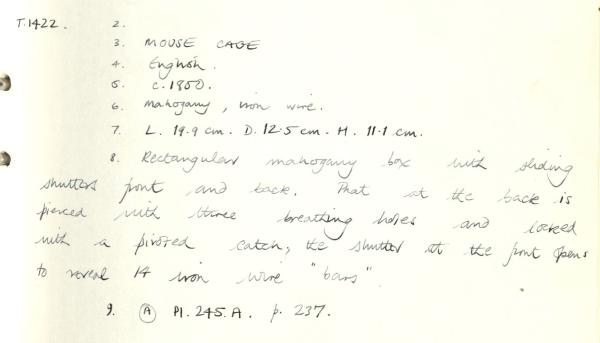 T.1422. 2.
3. MOUSE CAGE
4. English.
5. c.1850.
6. Mahogany, iron wire.
7. L. 19.9 cm. D. 12.5 cm. H. 11.1 cm.
8. Rectangular mahogany box with sliding
shutters front and back. That at the back is
pierced with three breathing holes and locked
with a pivoted catch, the shutter at the front opens
to reveal 14 iron wire "bars".
9. (A) Pl. 245.A. p. 237.